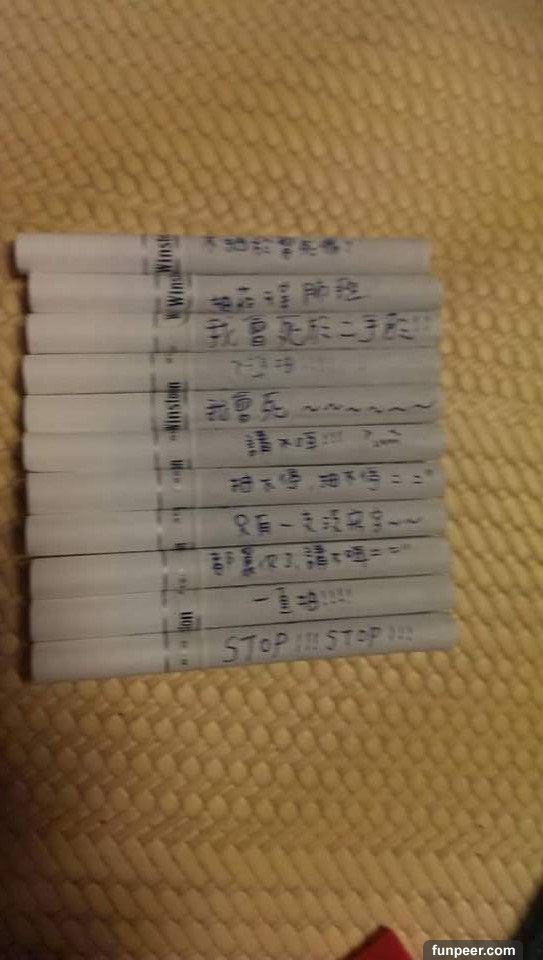 Winston
不抽你會死嗎?
Winston
抽菸=肺癌
我會死於二手菸!!
Winston
我會死~~~~~~
講不聽!!!
抽不停,抽不停= ="
只有一支沒寫字~~
都幾歲了,講不聽= ="
一直抽!!!!
STOP!!! STOP!!!
funpeer.com